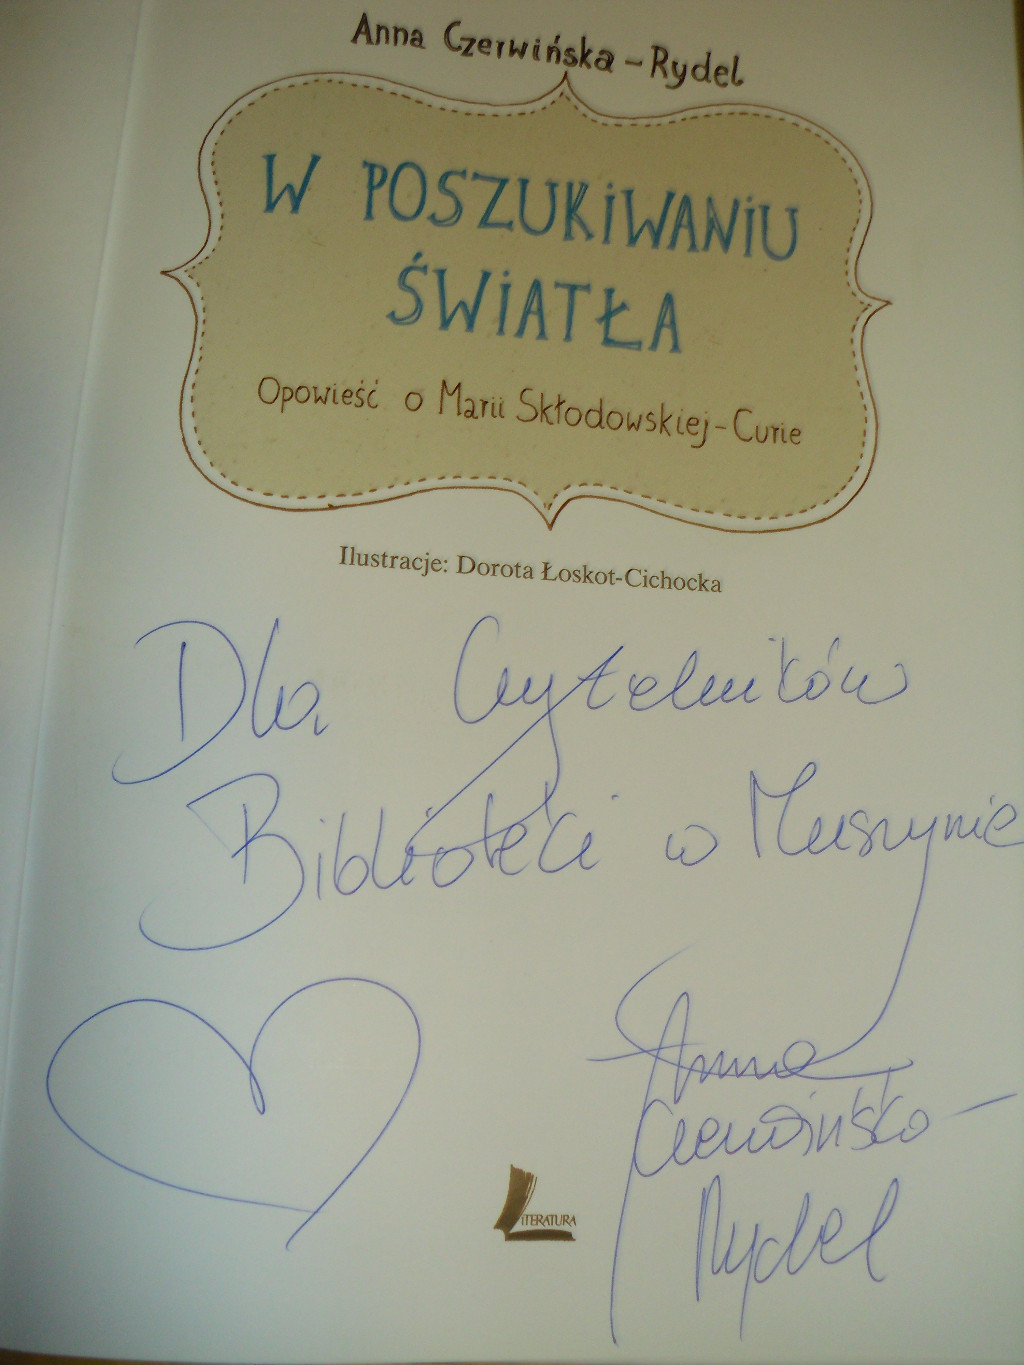 Anna Czerwińska-Rydel
W POSZUKIWANIU
ŚWIATŁA
Opowieść o Marii Skłodowskiej-Curie
Ilustracje: Dorota Łoskot-Cichocka
Dla Czytelników
Biblioteki w Muszynie
Anna
Czerwińska-
Rydel
LITERATURA